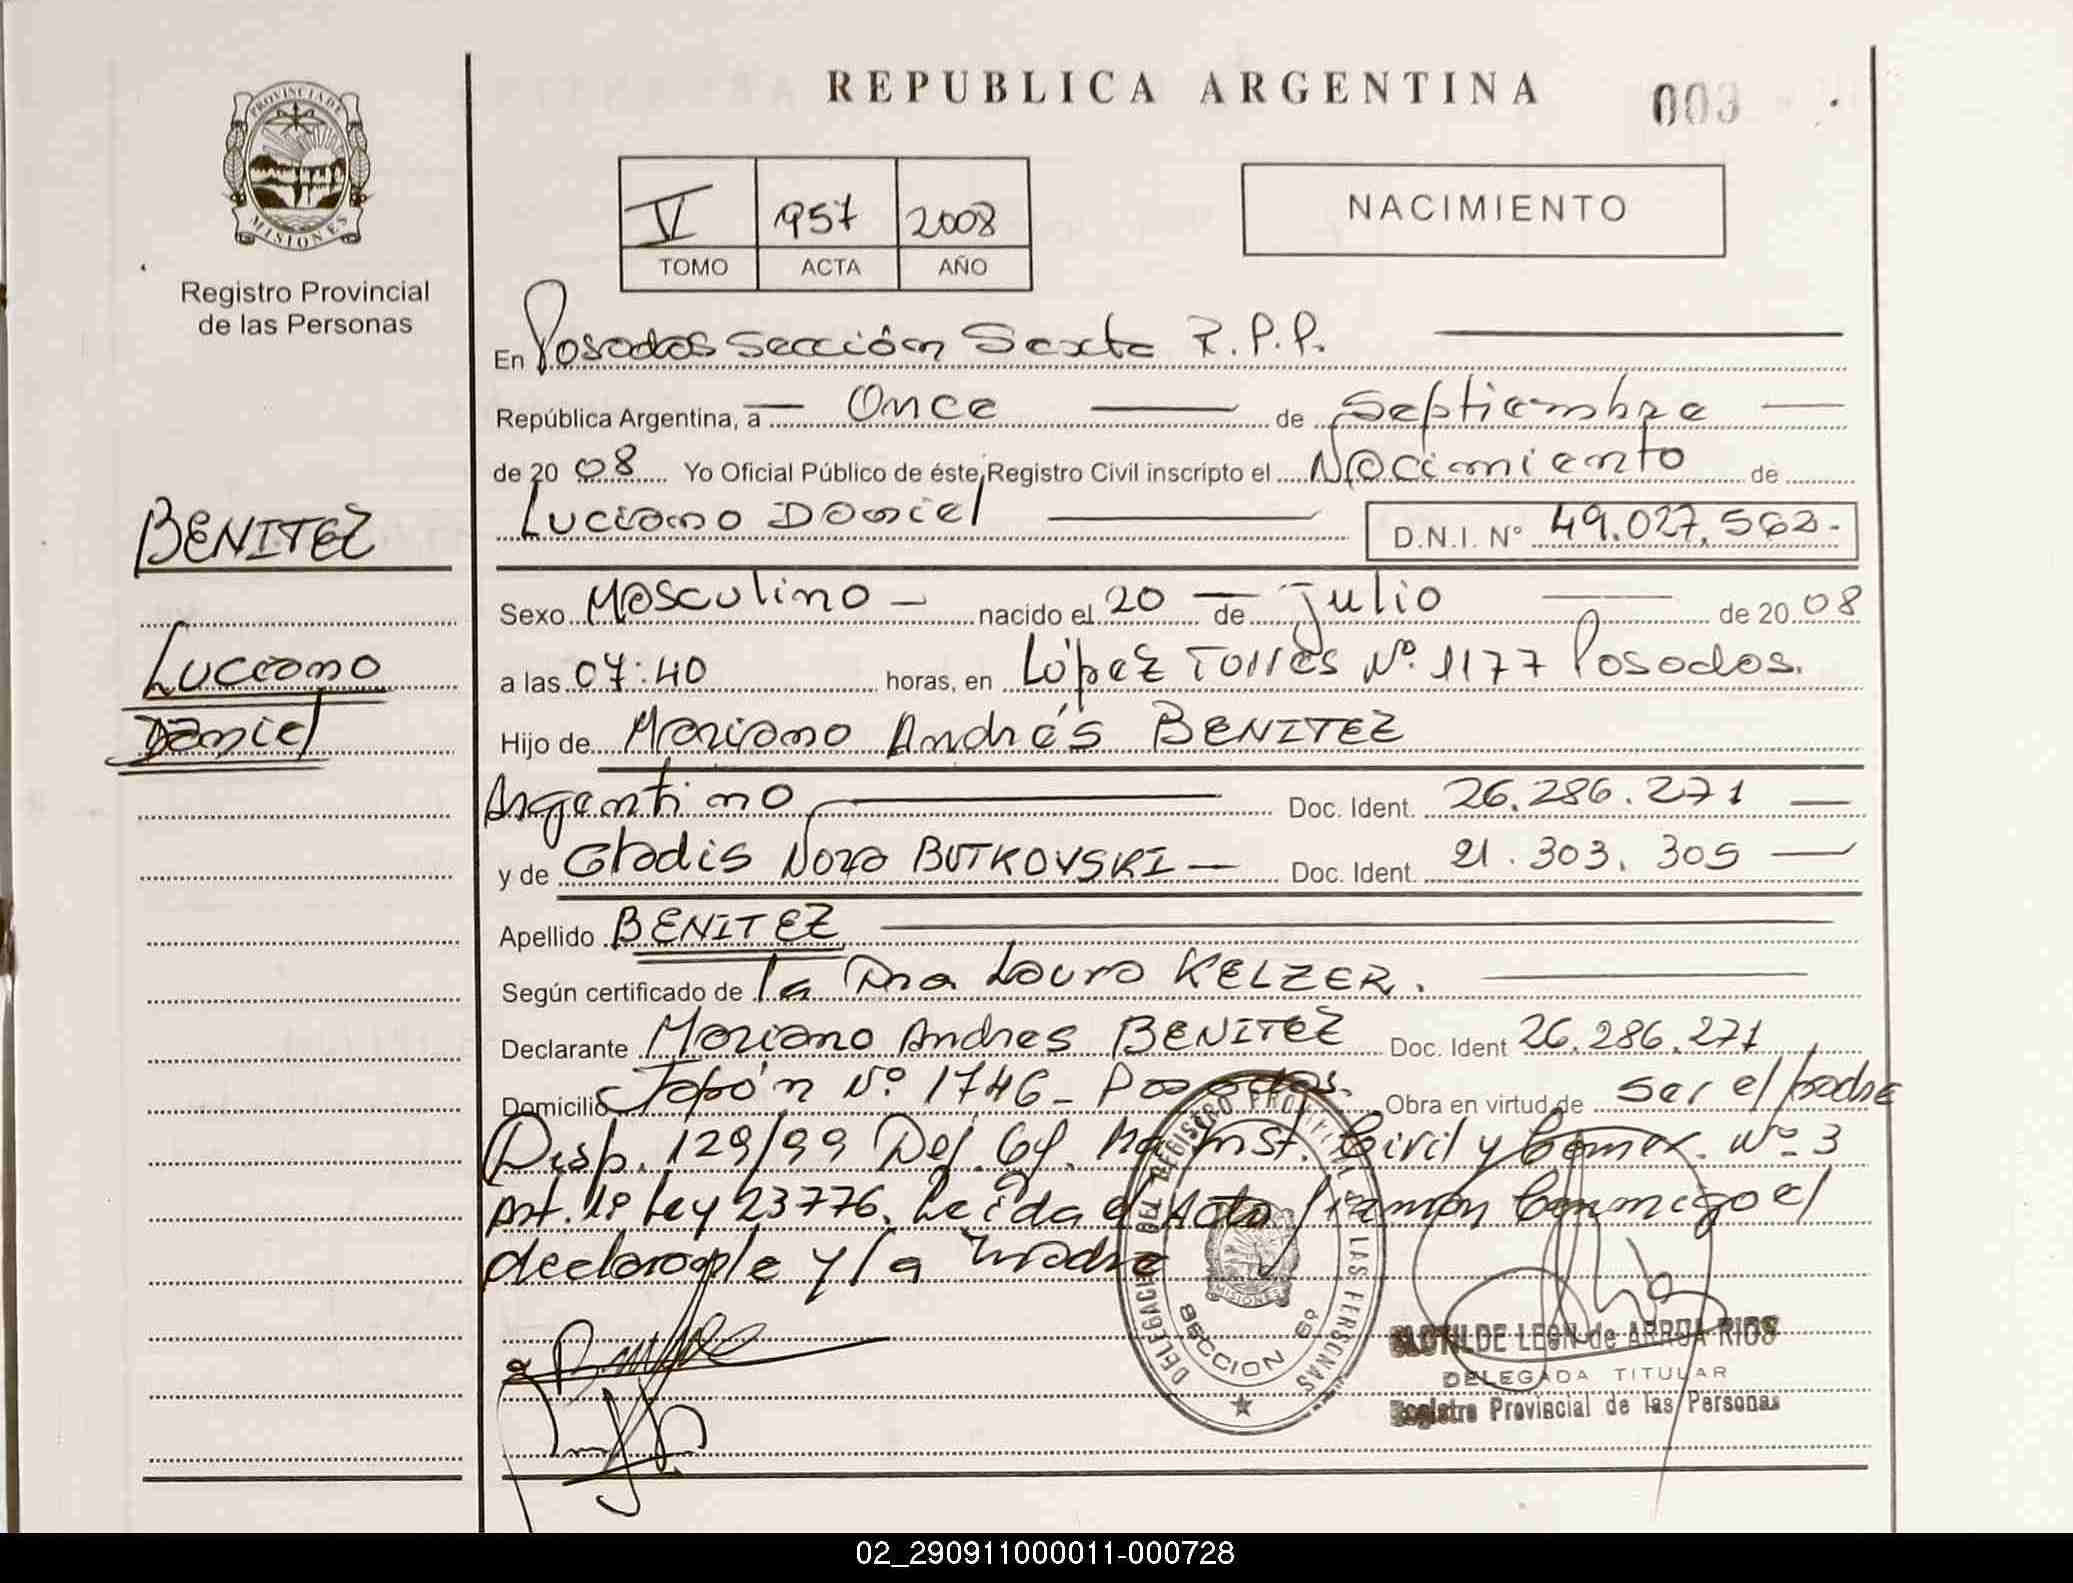 REPUBLICA ARGENTINA
003
PROVINCIA DE
MISIONES
Registro Provincial
de las Personas
V 957 2008
TOMO ACTA AÑO
NACIMIENTO
En Posadas Sección Sexta R.P.P.
República Argentina, a Once de Septiembre
de 20 08 Yo Oficial Público de éste Registro Civil inscripto el Nacimiento de
Luciano Daniel D.N.I. N° 49.027.562.-
BENITEZ
Luciano
Daniel
Sexo Masculino nacido el 20 de Julio de 20 08
a las 07:40 horas, en López Torres Nº 1177 Posadas.
Hijo de Mariano Andrés BENITEZ
Argentino Doc. Ident. 26.286.271
y de Gladis Nora BUTKOVSKI Doc. Ident. 21.303.305
Apellido BENITEZ
Según certificado de la Dra Laura KELZER.
Declarante Mariano Andres BENITEZ Doc. Ident 26.286.271
Domicilio Japón Nº 1746- Posadas. Obra en virtud de ser el padre
Disp. 129/99 Inst. Civil y Comer. Nº 3
Art. 1º Ley 23776. Leida el Acta firman Conmigo el
declarante y la madre
DELEGACION DEL REGISTRO PROVINCIAL DE LAS PERSONAS
MISIONES
SECCION 6º
CLOTILDE LEON de ARRUA RIOS
DELEGADA TITULAR
Registro Provincial de las Personas
02_290911000011-000728